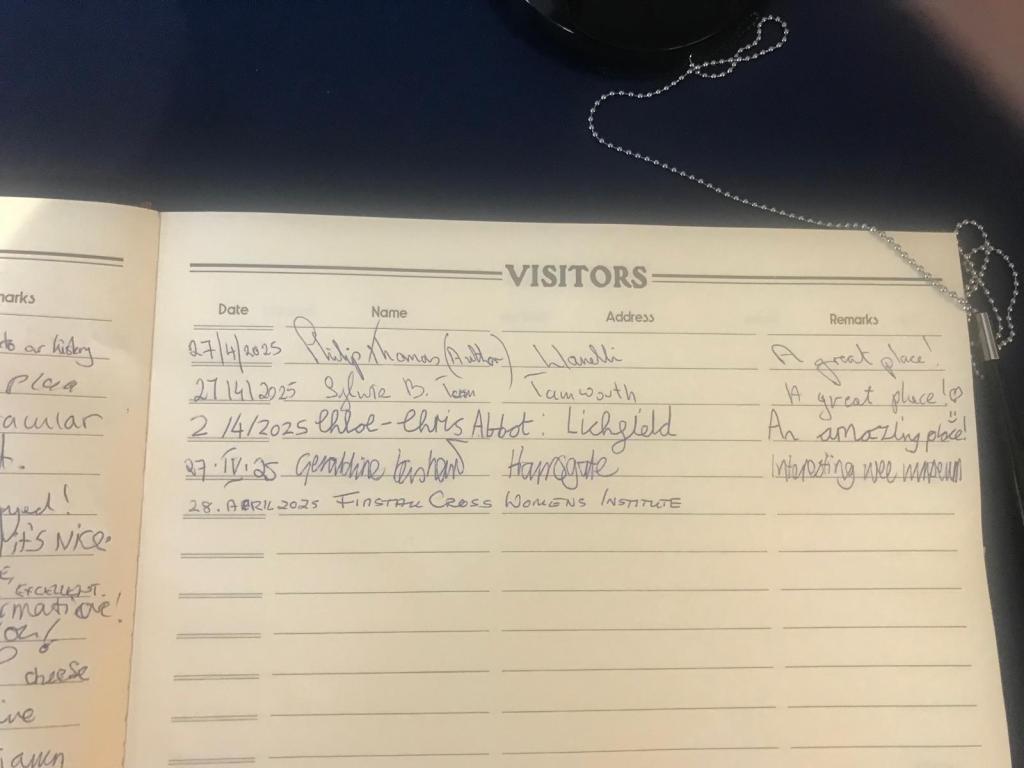 marks
history
place
acular
t.
yed!
it's NICE.
EXCELLENT.
rmative!
cheese
VISITORS
Date Name Address Remarks
27/4/2025 Philip Thomas (Author) A great place!
27/4/2025 Sylvie B. Tamworth A great place!
2 /4/2025 Chloe-Chris Abbot: Lichfield An amazing place!
27.IV.25 Geraldine Harrogate Interesting wee museum
28. APRIL 2025 CROSS WOMENS INSTITUTE